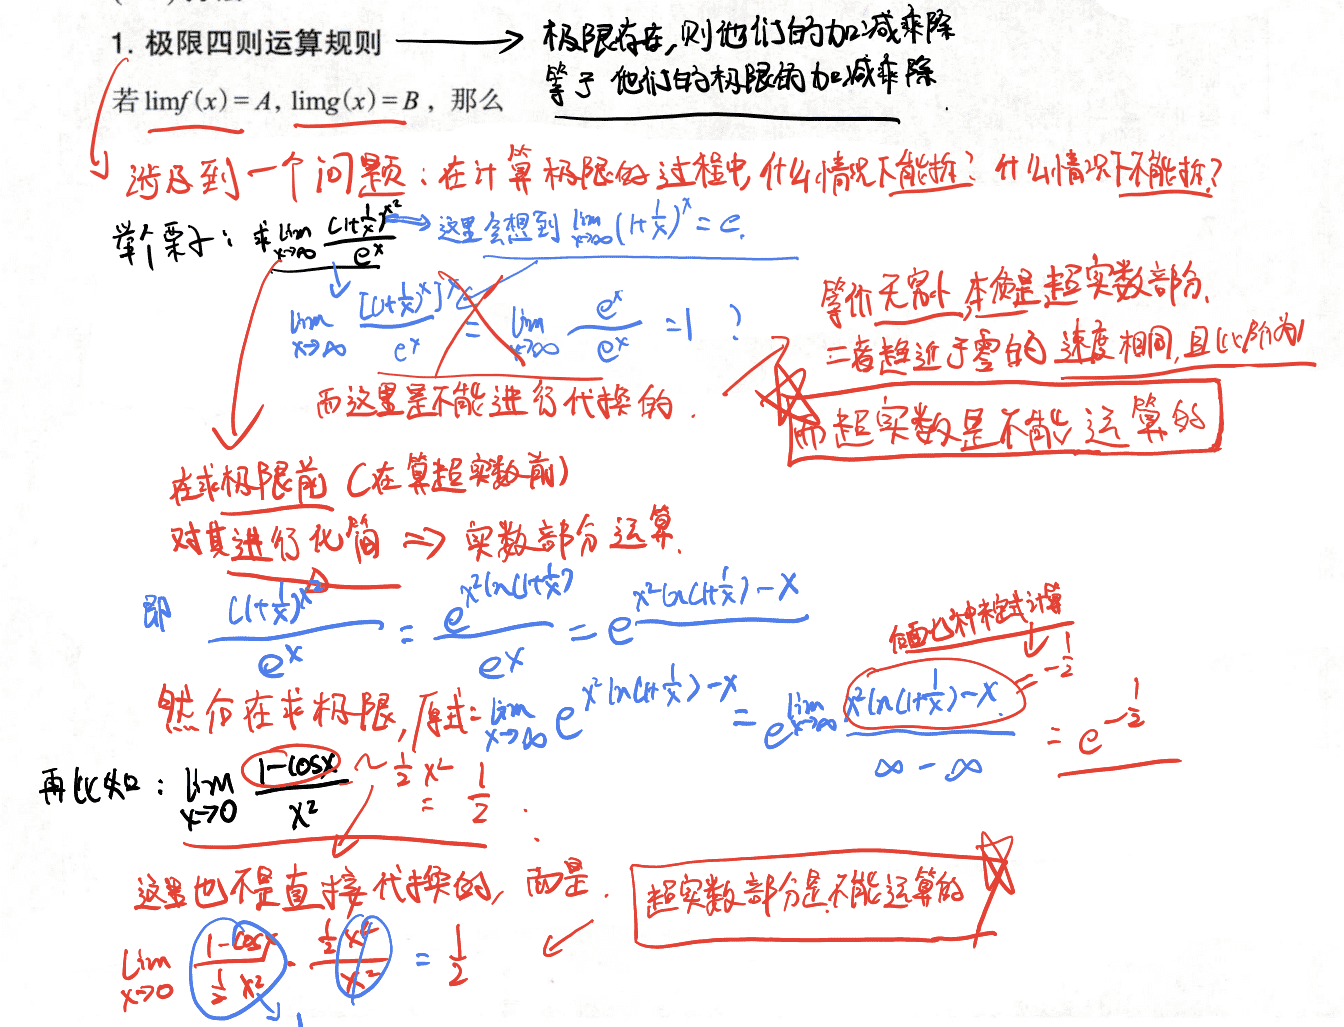 1. 极限四则运算规则 → 极限存在,则他们的加减乘除
等于他们的极限的加减乘除.
若 limf(x)=A, limg(x)=B, 那么
涉及到一个问题:在计算极限的过程中,什么情况下能拆?什么情况下不能拆?
举个栗子:求 lim x→∞ (1+1/x)^x² / e^x → 这里会想到 lim x→∞ (1+1/x)^x = e.
lim x→∞ [(1+1/x)^x]^x / e^x = lim x→∞ e^x / e^x = 1 ?
而这里是不能进行代换的.
等价无穷小,本质是超实数部分,
二者趋近于零的速度相同,且比阶为1
而超实数是不能运算的
在求极限前(在算超实数前)
对其进行化简 ⇒ 实数部分运算.
即 (1+1/x)^x² / e^x = e^(x²ln(1+1/x)) / e^x = e^(x²ln(1+1/x)-x)
然后在求极限,原式= lim x→∞ e^(x²ln(1+1/x)-x) = e^(lim x→∞ x²ln(1+1/x)-x) = e^(-1/2)
= -1/2
∞ - ∞
再比如: lim x→0 (1-cosx) / x² ~ 1/2 x² = 1/2.
这里也不是直接代换的,而是.
超实数部分是不能运算的
lim x→0 (1-cosx) / (1/2 x²) · (1/2 x²) / x² = 1/2
1